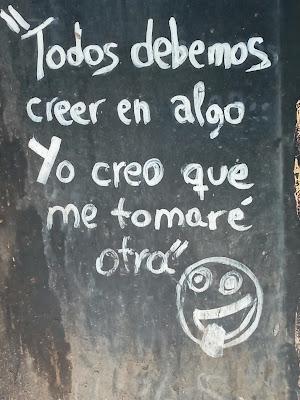 "Todos debemos
creer en algo
Yo creo que
me tomaré
otra"